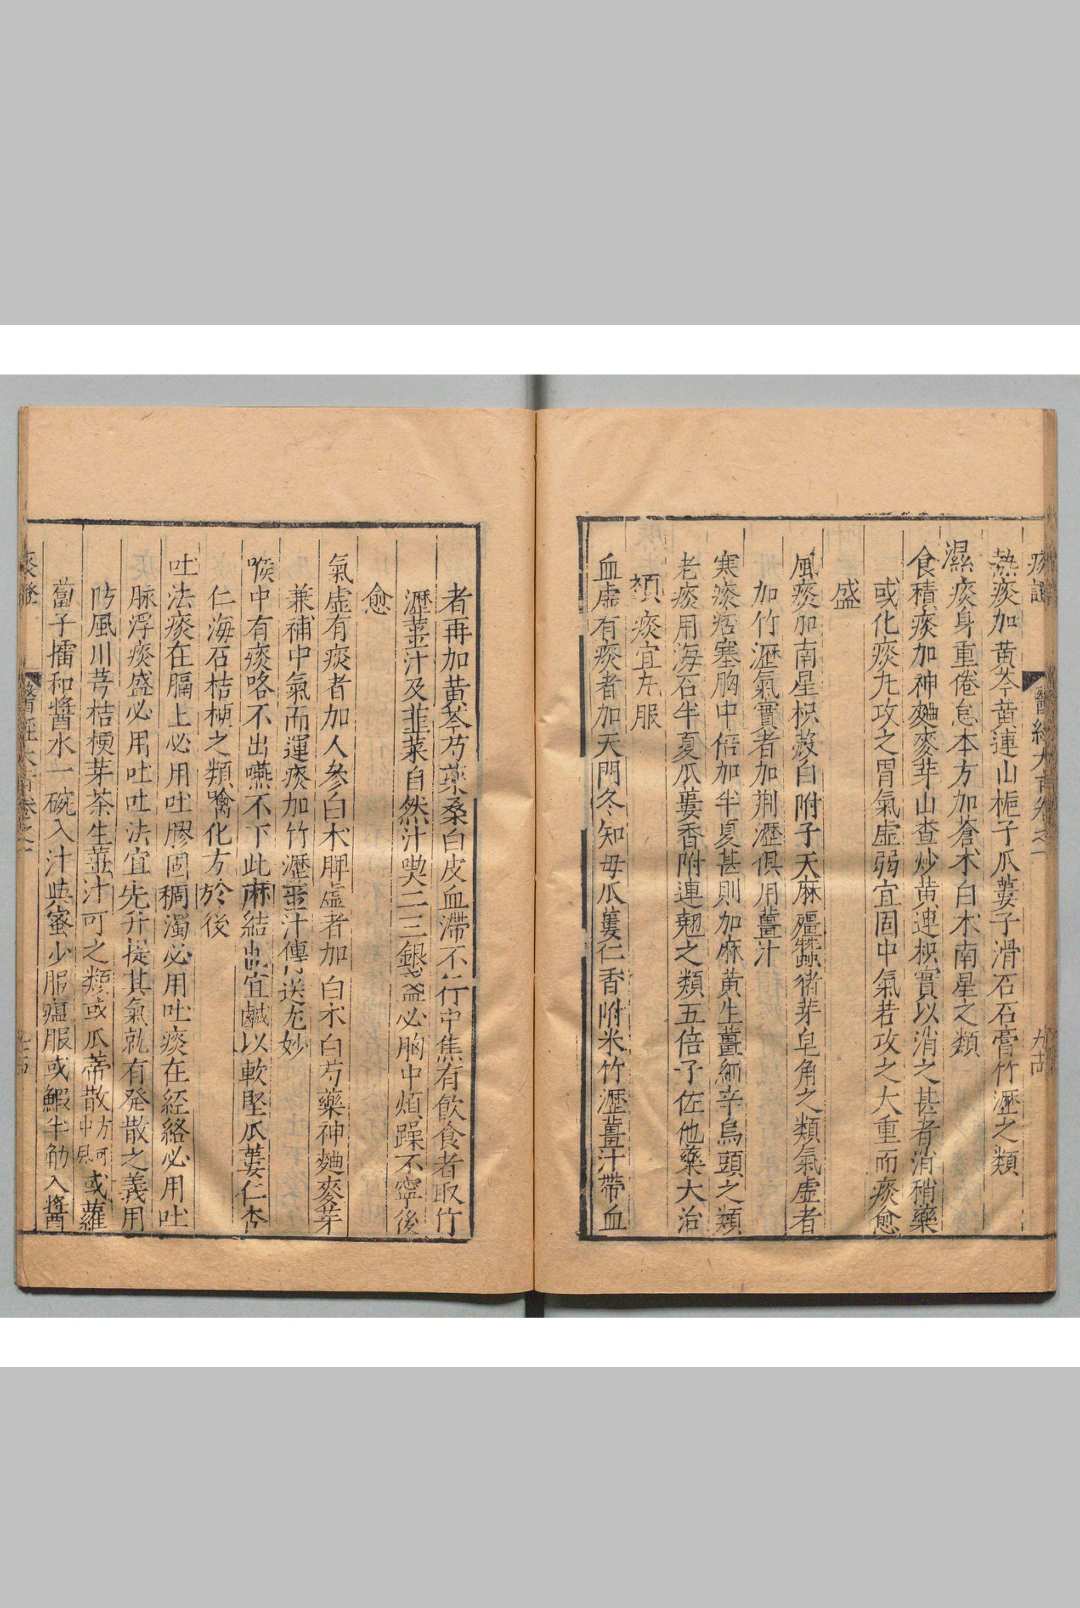 痰證 醫經大旨卷之一 九十四
熱痰加黃芩黃連山梔子瓜蔞子滑石石膏竹瀝之類
濕痰身重倦怠本方加蒼朮白朮南星之類
食積痰加神麯麥芽山查炒黃連枳實以消之甚者消稍藥
或化痰丸攻之胃氣虛弱宜固中氣若攻之大重而痰愈
盛
風痰加南星枳殼白附子天麻殭蠶猪芽皂角之類氣虛者
加竹瀝氣實者加荆瀝俱用薑汁
寒痰痞塞胸中倍加半夏甚則加麻黃生薑細辛烏頭之類
老痰用海石半夏瓜蔞香附連翹之類五倍子佐他藥大治
頑痰宜丸服
血虛有痰者加天門冬知母瓜蔞仁香附米竹瀝薑汁帶血
者再加黃芩芍藥桑白皮血滯不行中焦有飲食者取竹
瀝薑汁及韭菜自然汁㕽二三銀盞必胸中煩躁不寧後
愈
氣虛有痰者加人參白朮脾虛者加白朮白芍藥神麯麥芽
兼補中氣而運痰加竹瀝薑汁傳送尤妙
喉中有痰咯不出嚥不下此痰結也宜鹹以軟堅瓜蔞仁杏
仁海石桔梗之類噙化方於後
吐法痰在膈上必用吐膠固稠濁必用吐痰在經絡必用吐
脉浮痰盛必用吐吐法宜先升提其氣就有發散之義用
防風川芎桔梗芽茶生薑汁可之類或瓜蒂散方可中 或蘿
蔔子擂和醬水一碗入汁與蜜少服瘟服或蝦半觔入醬
痰證 醫經大旨卷之一 九十四